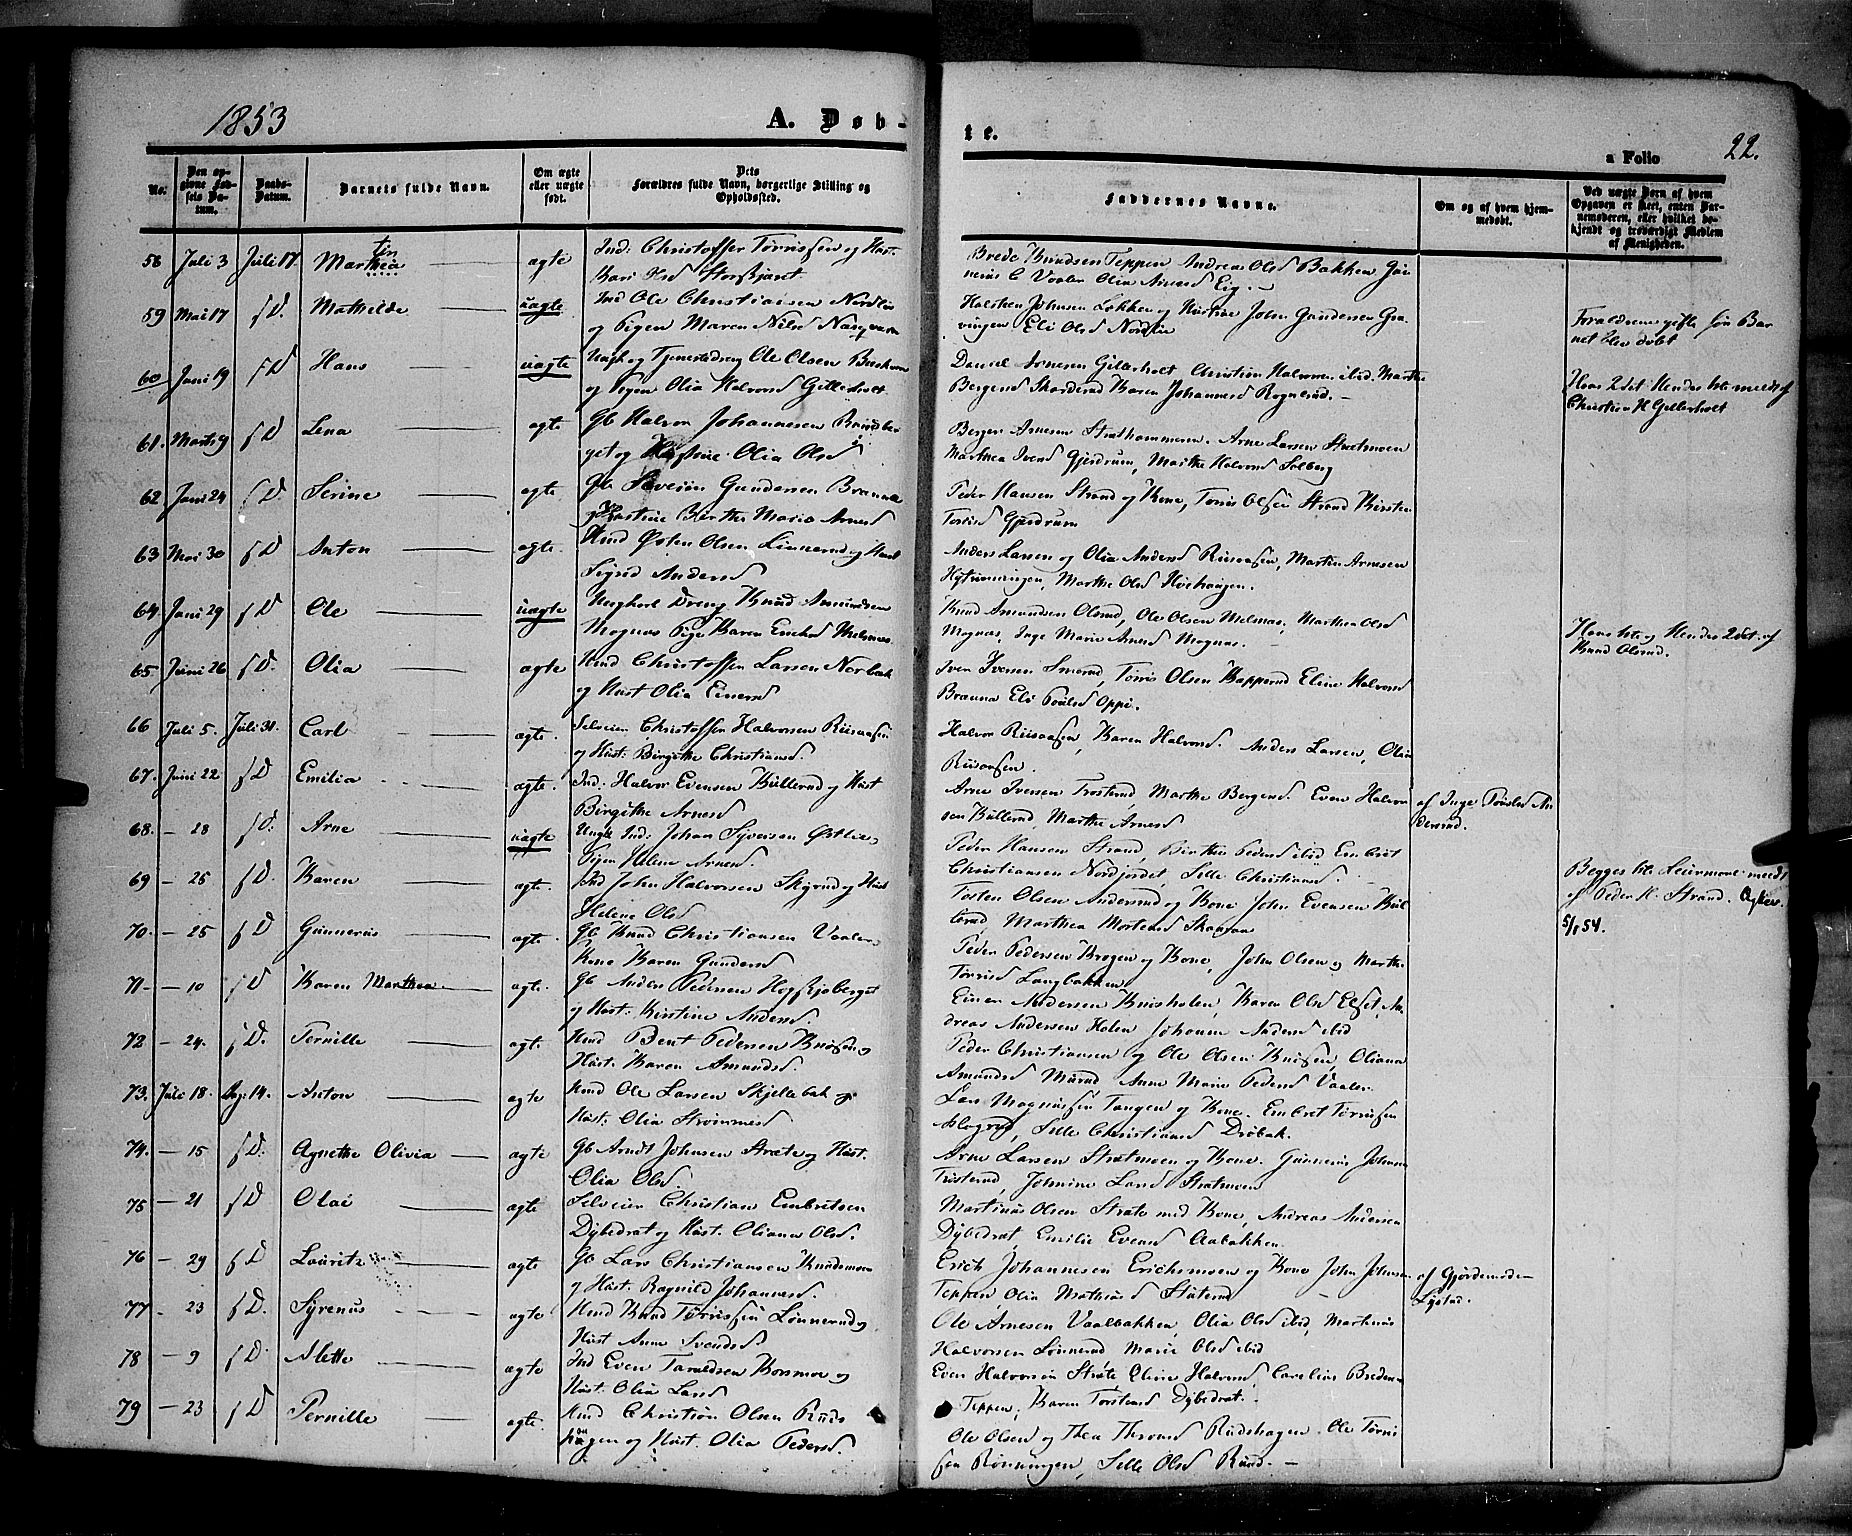 1853
A. Døb-
te.
a Folio 22.
No.
Den opgivne Fødsels Datum.
Daabs-Datum.
Barnets fulde Navn.
Om ægte eller uægte født.
Dets Forældres fulde Navn, borgerlige Stilling og Opholdssted.
Faddernes Navne.
Om og af hvem hjemmedøbt.
Ved uægte Børn af hvem Opgaven er skeet, enten Barnemoderen, eller hvilket bekjendt og troværdigt Medlem af Menigheden.
58 Juli 3 Juli 17 Marthea tin ægte Ind: Christoffer Torrissen og Hust.
Kari Olsd
Brede Knudsen Teppen Andreas Olsd Bakken
Vaaler Olia Arnesd Eig.
59 Mai 17 s D. Mathilde uægte Ind Ole Christiansen Nordlie
og Pigen Maren Nilsd
Halsten Johnsen Løkken og Hustrue John Gundersen Gra-
vingen Eli Olsd Nordlie
Forældrene gifte før Bar
net blev døbt
60 Juni 19 s D Hans uægte Ungk og Tjenestedreng Ole Olsen
og Pigen Olia Halvorsd Gillerholt
Daniel Arnesen Gillerholt Christian Halvorsen ibid. Marthe
Bergersd Skarderud Karen Johannesd Rognerud. -
Hans 2det Hendes 1ste meldt af
Christian H Gillerholt
61. Marts 9 s D Lena ægte Gb Halvor Johannesen Rundber
get og Hustrue Olia Olsd
Berger Arnesen Strathammeren. Arne Larsen Stratmoen
Marthea Iversd Gjerdrum, Marthe Halvorsd Solberg
62 Juni 24 s D Serine ægte Gb Severin Gundersen Braaten
og Hustrue Berthe Maria Arnesd
Peder Hansen Strand og Kone, Torris Olsen Strand Kirstine
Torrisd Gjerdrum
63 Mai 30 s D Anton ægte. Hmd Østen Olsen Linnerud og Hust
Sigrid Andersd
Anders Larsen og Olia Andersd Riisaasen, Martin Arnesen
Marthe Olsd
64 Juni 29 s D Ole uægte Ungkarl Dreng Knud Amundsen
Mognas Pige Karen Embretsd Melmas
Knud Amundsen Olsrud, Ole Olsen Melmas, Marthea Olsd
Mognas, Inge Marie Arnesd Mognas.
Hans 1ste og Hendes 2det. af
Knud Olsrud.
65 Juni 26 s D. Olia ægte Hmd Christoffer Larsen Norbak
og Hust Olia Einersd
Iver Iversen Smerud, Torris Olsen Kapperud Eline Halvorsd
Braaten Eli Povlsd Oppi.
66 Juli 5. Juli 31. Carl ægte. Selveier Christoffer Halvorsen Riisaasen
og Hust: Birgithe Christiansd.
Halvor Riisaasen, Karen Halvorsd. Anders Larsen, Olia
Riisaasen.
67. Juni 22 s D Emilia ægte. Ind: Halvor Evensen Kullerud og Hust
Birgithe Arnesd
Arne Iversen Trosterud, Marthe Bergersd. Even Halvor
sen Kullerud, Marthe Arnesd
af Inge Povlsd An
dersrud.
68. - 28 s D: Arne uægte Ungk Ind: Johan Syversen Østlie,
Pigen Helene Arnesd.
Peder Hansen Strand, Birthe Pedersd ibid Embret
Christiansen Nordjordet, Sille Christiansd.
Begges 1ste Leiermaal meldt
af Peder H. Strand.
5/1 54.
69 - 25 s D. Karen ægte. Ind John Halvorsen Skyrud og Hust
Helene Olsd
Tosten Olsen Andersrud og Kone John Evensen Kul-
lerud, Marthea Mortensd Skaaraa
70. - 25 s D Gunnerus ægte. Gb Knud Christiansen Vaaler
Kone Karen Gundersd
Peder Pedersen Brogen og Kone, John Olsen og Marthe
Torrisd Langbakken
71 - 10 s D Karen Marthea ægte. Gb Anders Pedersen Høgskjoberget
og Hust: Kirstine Andersd.
Einer Andersen Kniisholen, Karen Olsd Elset, An
dreas Andersen Holen Johanne Andersd ibid
72 - 24. s D. Pernille ægt. Hmd Bent Pedersen Kniisen
Hust: Karen Amundsd.
Peder Christiansen og Ole Olsen Kniisen, Oliana
Amundsd Murud Anne Marie Pedersd Vaaler
73. Juli 18. Aug. 14. Anton ægte Hmd Ole Larsen Skjellebak og
Hust: Olia
Lars Magnussen Tangen og Kone. Embret Torrissen
Sille Christiansd Drøbak.
74. - 15 s D. Agnethe Olivia ægte Gb Arndt Johnsen Strate og Hust.
Olia Olsd.
Arne Larsen Stratmoen og Kone. Gunnerus Johnsen
Trosterud, Johnine Larsd Stratmoen
75 - 21 s D Olai ægte Selveier Christian Embretsen
Dybedrat og Hust. Oliana Olsd.
Martinus Olsen Strate med Kone, Andreas Andersen
Dybedrat, Emilie Evensd Aabakken.
76 - 29 s D Lauritz ægte Gb Lars Christiansen Kruksmoen
og Hust. Ragnild Johannesd.
Erich Johannesen Erichsmoen og Kone John Johnsen
Teppen, Olia Mathiasd
af Gjordemoder
77 - 23 s D. Syrenus ægte Hmd Knud Torrissen Linnerud og
Hust Anne Svendsd.
Ole Arnesen Vaalbakken, Olia Olsd ibid, Martinus
Halvorsen Linnerud Marie Olsd ibid
78 - 9 s D. Alette ægte Ind Even Taraldsen Kosmoe og
Hust: Olia Larsd
Even Halvorsen Strate Eline Halvorsd, Carelius Bredesen
Teppen, Karen Torstensd Dybedrat.
79 - 23 s D Pernille ægte. Hmd Christian Olsen Ruds
hagen og Hust. Olia Pedersd.
Ole Olsen og Thea Thronsd Rudshagen Ole Torris
sen Rønningen, Sille Olsd Ruud. -